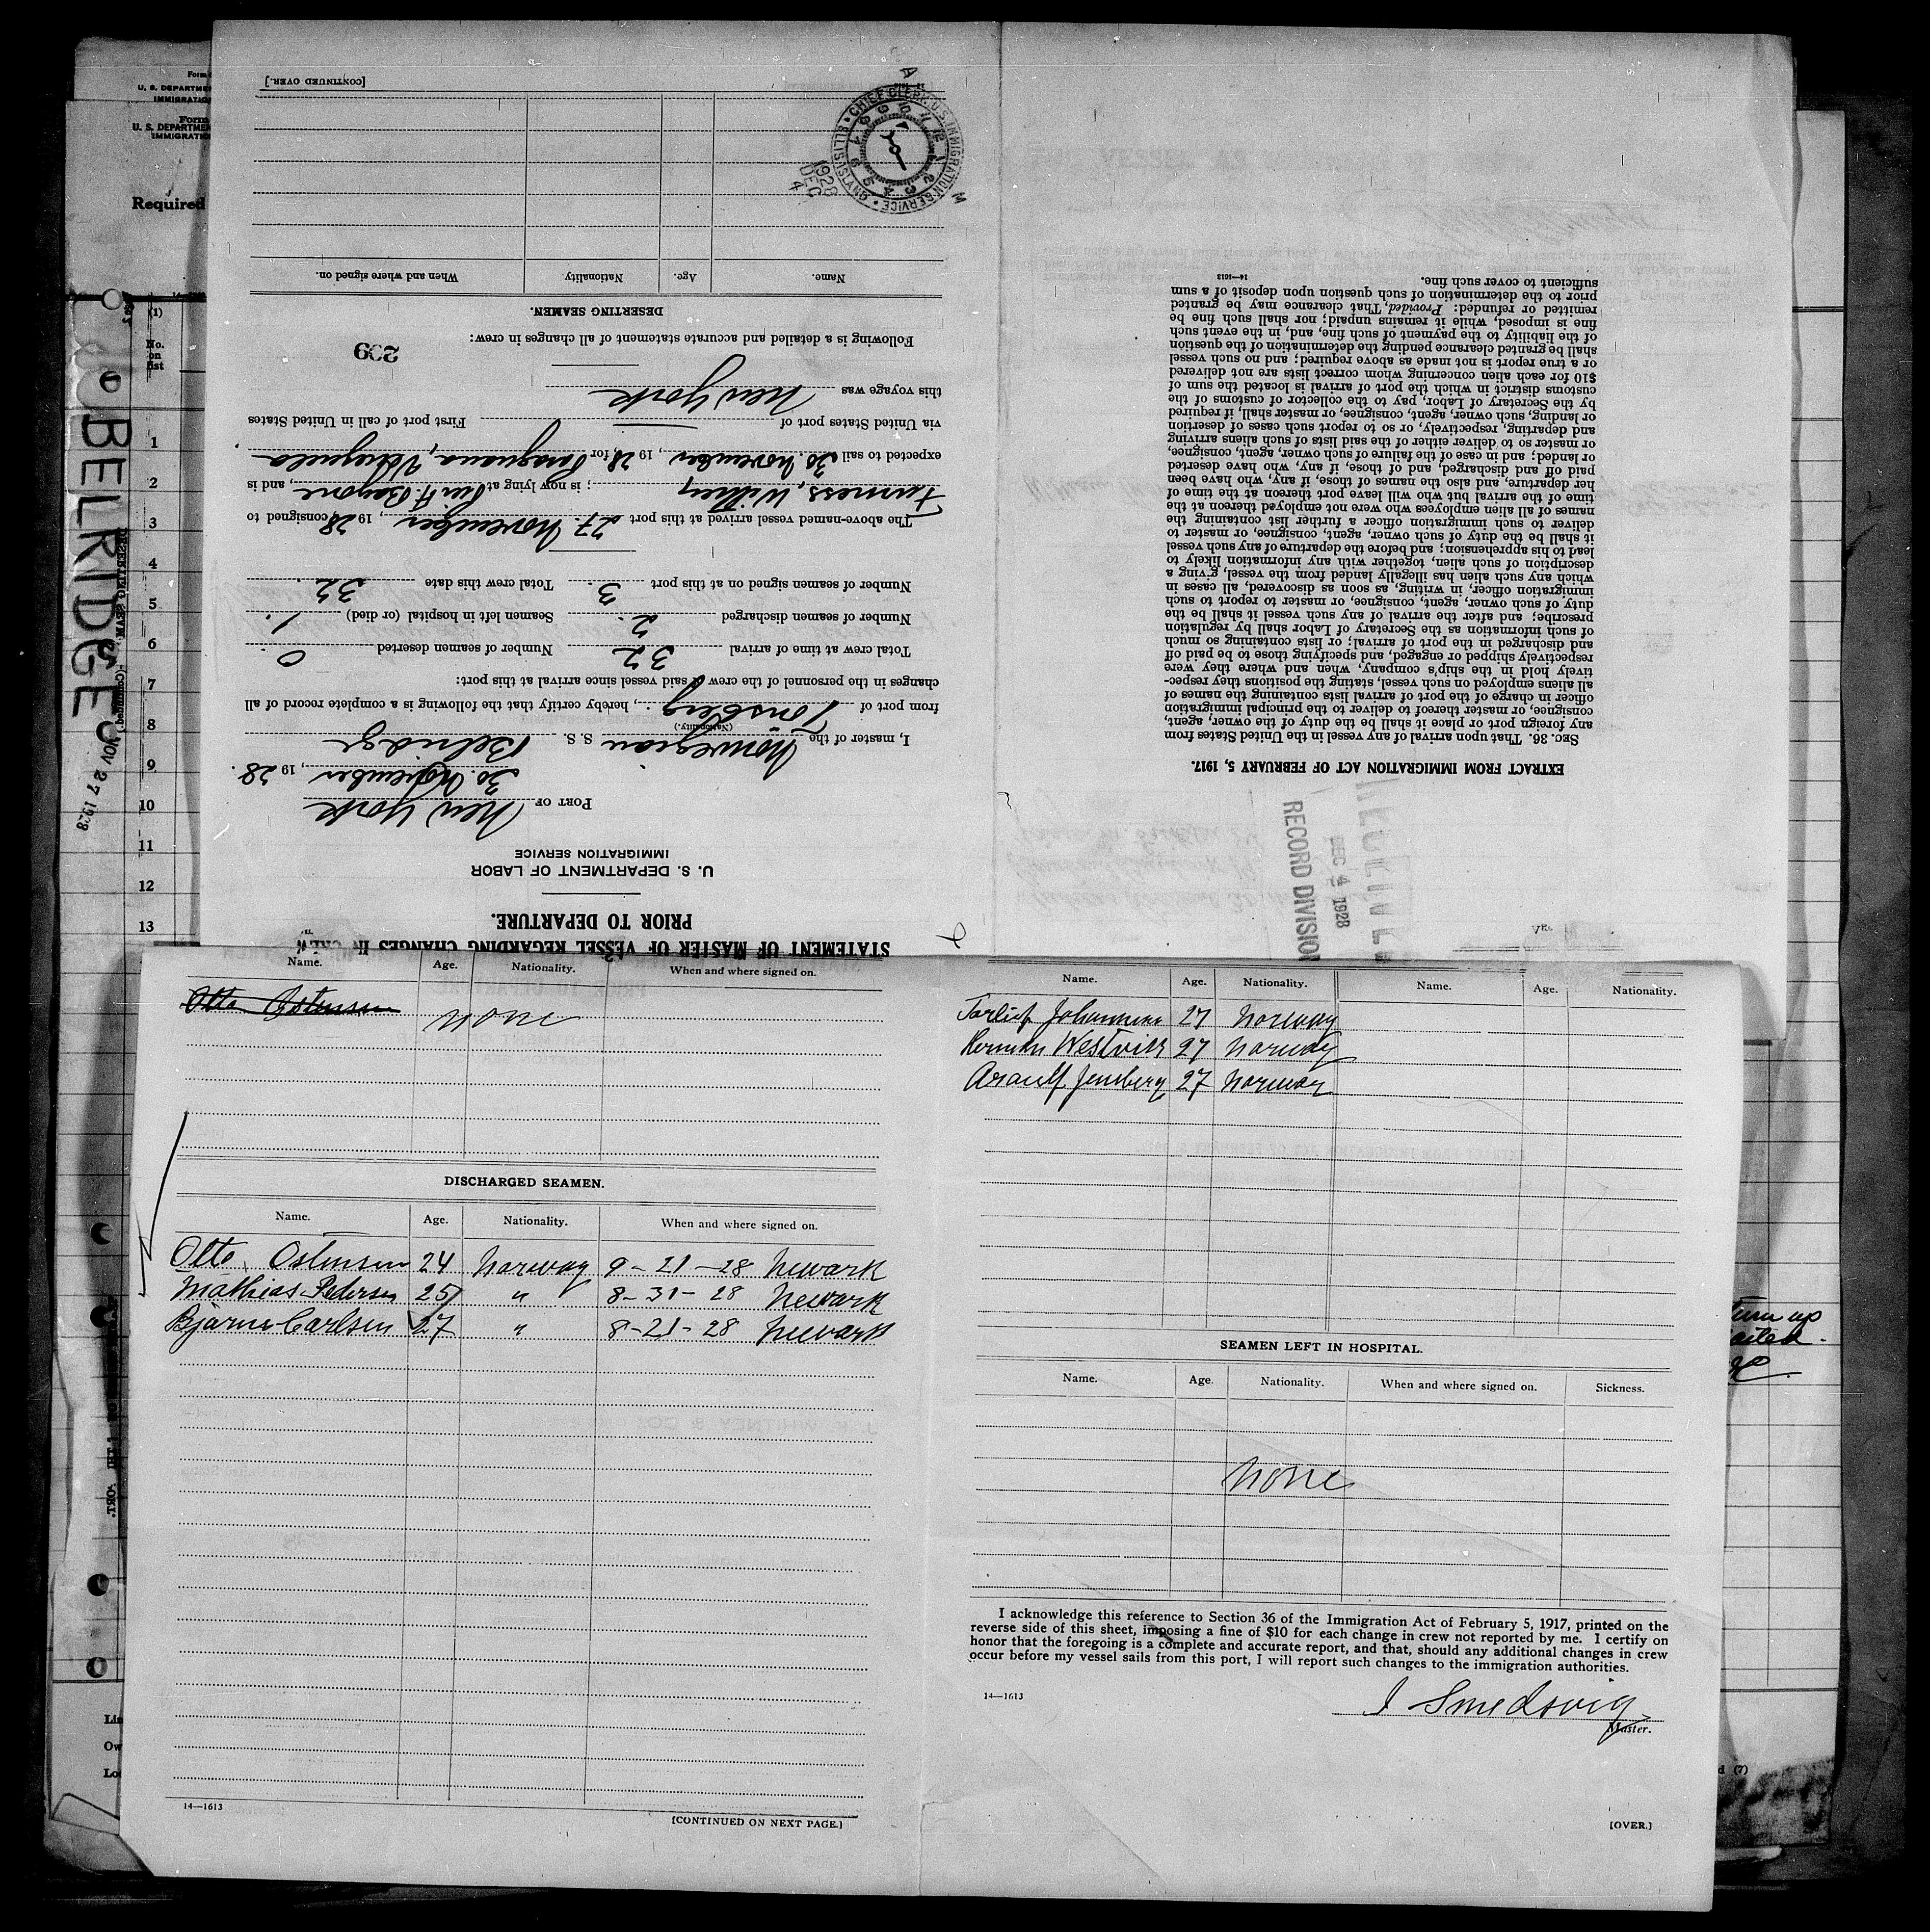 STATEMENT OF MASTER OF VESSEL REGARDING CHANGES IN CREW
PRIOR TO DEPARTURE.
U. S. DEPARTMENT OF LABOR
IMMIGRATION SERVICE
PORT OF New York
30. November, 1928.
I, master of the Norwegian S. S. Belridge
(Nationality.)
from port of Tonsberg, hereby certify that the following is a complete record of all
changes in the personnel of the crew of said vessel since arrival at this port:
Total crew at time of arrival 32 Number of seamen deserted 0
Number of seamen discharged 2. Seamen left in hospital (or died) 1.
Number of seamen signed on at this port 3. Total crew this date 32.
The above-named vessel arrived at this port 27. November, 1928, consigned to
Furness, Withey; is now lying at Bayonne, and is
expected to sail 30. November, 1928, for Paraguana, Venezuela,
via United States port of First port of call in United States
this voyage was New York
299
Following is a detailed and accurate statement of all changes in crew:
DESERTING SEAMEN.
Name. Age. Nationality. When and where signed on.
[CONTINUED OVER.]
CHIEF CLERK U.S. IMMIGRATION SERVICE • ELLIS ISLAND •
1928
DEC
4
A M
EXTRACT FROM IMMIGRATION ACT OF FEBRUARY 5, 1917.
SEC. 36. That upon arrival of any vessel in the United States from
any foreign port or place it shall be the duty of the owner, agent,
consignee, or master thereof to deliver to the principal immigration
officer in charge of the port of arrival lists containing the names of
all aliens employed on such vessel, stating the positions they respec-
tively hold in the ship's company, when and where they were
respectively shipped or engaged, and specifying those to be paid off
and discharged in the port of arrival; or lists containing so much
of such information as the Secretary of Labor shall by regulation
prescribe; and after the arrival of any such vessel it shall be the
duty of such owner, agent, consignee, or master to report to such
immigration officer, in writing, as soon as discovered, all cases in
which any such alien has illegally landed from the vessel, giving a
description of such alien, together with any information likely to
lead to his apprehension; and before the departure of any such vessel
it shall be the duty of such owner, agent, consignee, or master to
deliver to such immigration officer a further list containing the
names of all alien employees who were not employed thereon at the
time of the arrival but who will leave port thereon at the time of
her departure, and also the names of those, if any, who have been
paid off and discharged, and of those, if any, who have deserted
or landed; and in case of the failure of such owner, agent, consignee,
or master so to deliver either of the said lists of such aliens arriving
and departing, respectively, or so to report such cases of desertion
or landing, such owner, agent, consignee, or master shall, if required
by the Secretary of Labor, pay to the collector of customs of the
customs district in which the port of arrival is located the sum of
$10 for each alien concerning whom correct lists are not delivered
or a true report is not made as above required; and no such vessel
shall be granted clearance pending the determination of the question
of the liability to the payment of such fine, and, in the event such
fine is imposed, while it remains unpaid; nor shall such fine be
remitted or refunded: Provided, That clearance may be granted
prior to the determination of such question upon deposit of a sum
sufficient to cover such fine.
14—1613
RECORD DIVISION
DEC 4 1928
Form
U. S. DEPARTMEN
IMMIGRATIO
Form
U. S. DEPARTMEN
IMMIGRATI
Required
(1)
No.
on
list
1
2
3
4
5
6
7
8
9
10
11
12
13
BELRIDGE
NOV 27 1928
Name. Age. Nationality. When and where signed on.
Otto Ostensen
None
DISCHARGED SEAMEN.
Name. Age. Nationality. When and where signed on.
Otto Ostensen 24 Norway 9-21-28 Newark
Mathias Pedersen 25 " 8-31-28 Newark
Bjarne Carlsen 27 " 8-21-28 Newark
14—1613
[CONTINUED ON NEXT PAGE.]
Name. Age. Nationality. Name. Age. Nationality.
Johannesen 27 Norway
Herman 27 Norway
27 Norway
SEAMEN LEFT IN HOSPITAL.
Name. Age. Nationality. When and where signed on. Sickness.
None
I acknowledge this reference to Section 36 of the Immigration Act of February 5, 1917, printed on the
reverse side of this sheet, imposing a fine of $10 for each change in crew not reported by me. I certify on
honor that the foregoing is a complete and accurate report, and that, should any additional changes in crew
occur before my vessel sails from this port, I will report such changes to the immigration authorities.
14—1613
I Smedsvig
Master.
[OVER.]